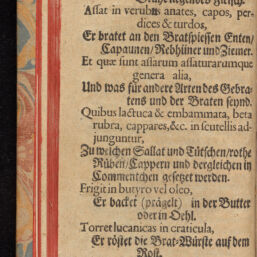 Assat in verubus anates, capos, per-
dices & turdos,
Er bratet an den Bratspiessen Enten/
Capaunen/Rebhüner und Ziemer.
Et quæ sunt asiarum assaturarumque
genera alia,
Und was für andere Arten des Gebra-
tens und der Braten seynd.
Quibus lactuca & embammata, beta
rubra, cappares, &c. in scutellis ad-
junguntur,
Zu welchen Sallat und Tütschen/rothe
Rüben/Cappern und dergleichen in
Commentchen gesetzet werden.
Frigit in butyro vel oleo,
Er backet (prägelt) in der Butter
oder in Oehl.
Torret lucanicas in craticula,
Er röstet die Brat-Würste auf dem
Rost.